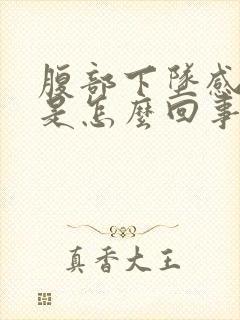 腹部下墜感
是怎麼回事
真香大王